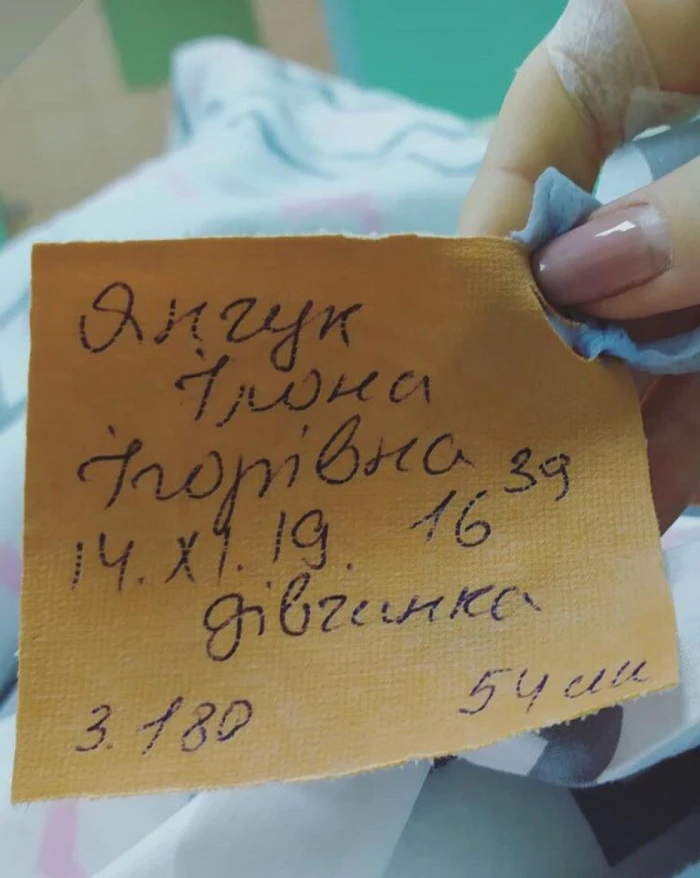 Янчук
Ілона
Ігорівна
14. XI. 19. 16 39
дівчинка
3.180 54 см